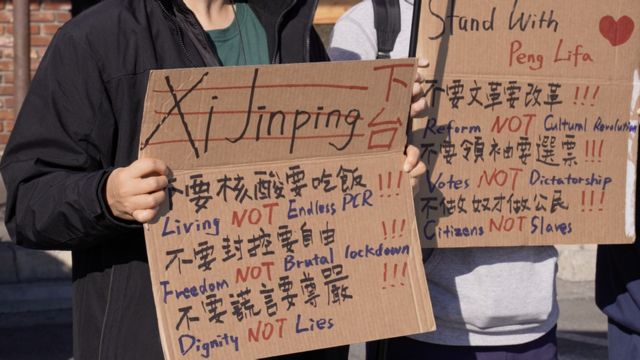 Xi Jinping 下台
不要核酸要吃飯!!!
Living NOT Endless PCR
不要封控要自由!!!
Freedom NOT Brutal lockdown
不要謊言要尊嚴!!!
Dignity NOT Lies
Stand With
Peng Lifa
不要文革要改革!!!
Reform NOT Cultural Revolution
不要領袖要選票!!!
Votes NOT Dictatorship
不做奴才做公民!!!
Citizens NOT Slaves